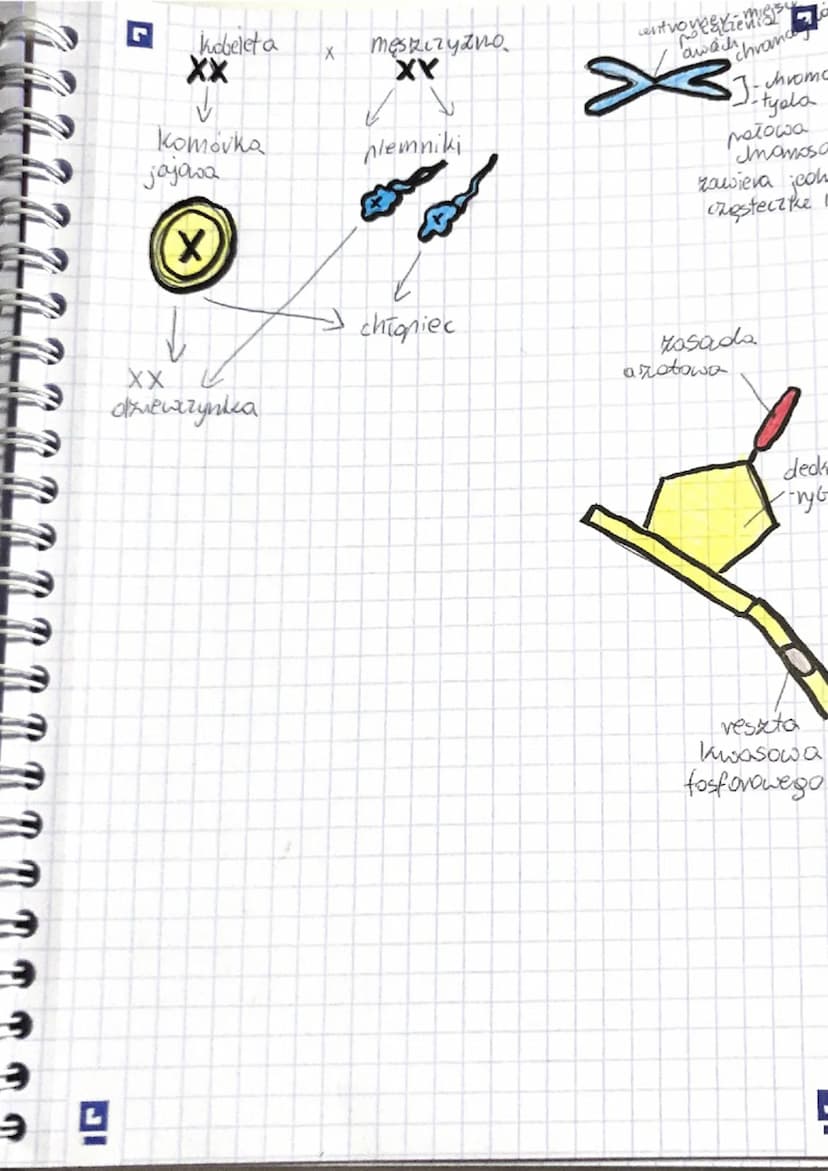 kobieta x męszczyzna
XX XY
komórka
jajowa
plemniki
X
X
X
chłopiec
XX
dziewczynka
centromer - miejsce
połączenia
dwóch chromatyd
] - chroma
-tyda
połowa
chromoso
zawiera jedn
cząsteczkę
zasada
azotowa
deok
-ryb
reszta
kwasowa
fosforowego